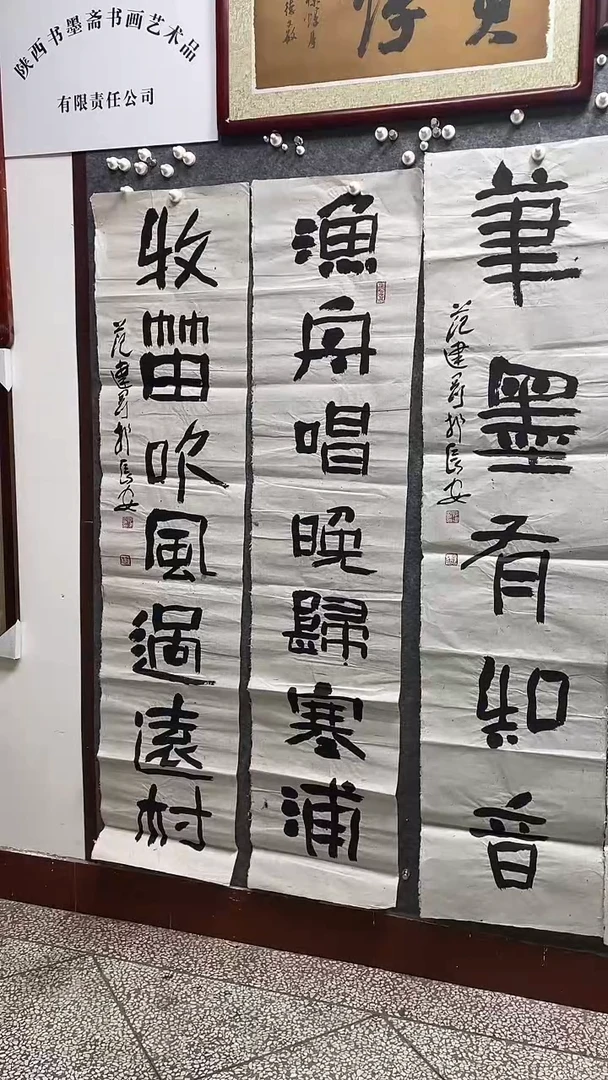 陕西书墨斋书画艺术品
有限责任公司
筆墨有知音
范建 於長安
漁舟唱晚歸寒浦
牧笛吹風過遠村
范建 於長安